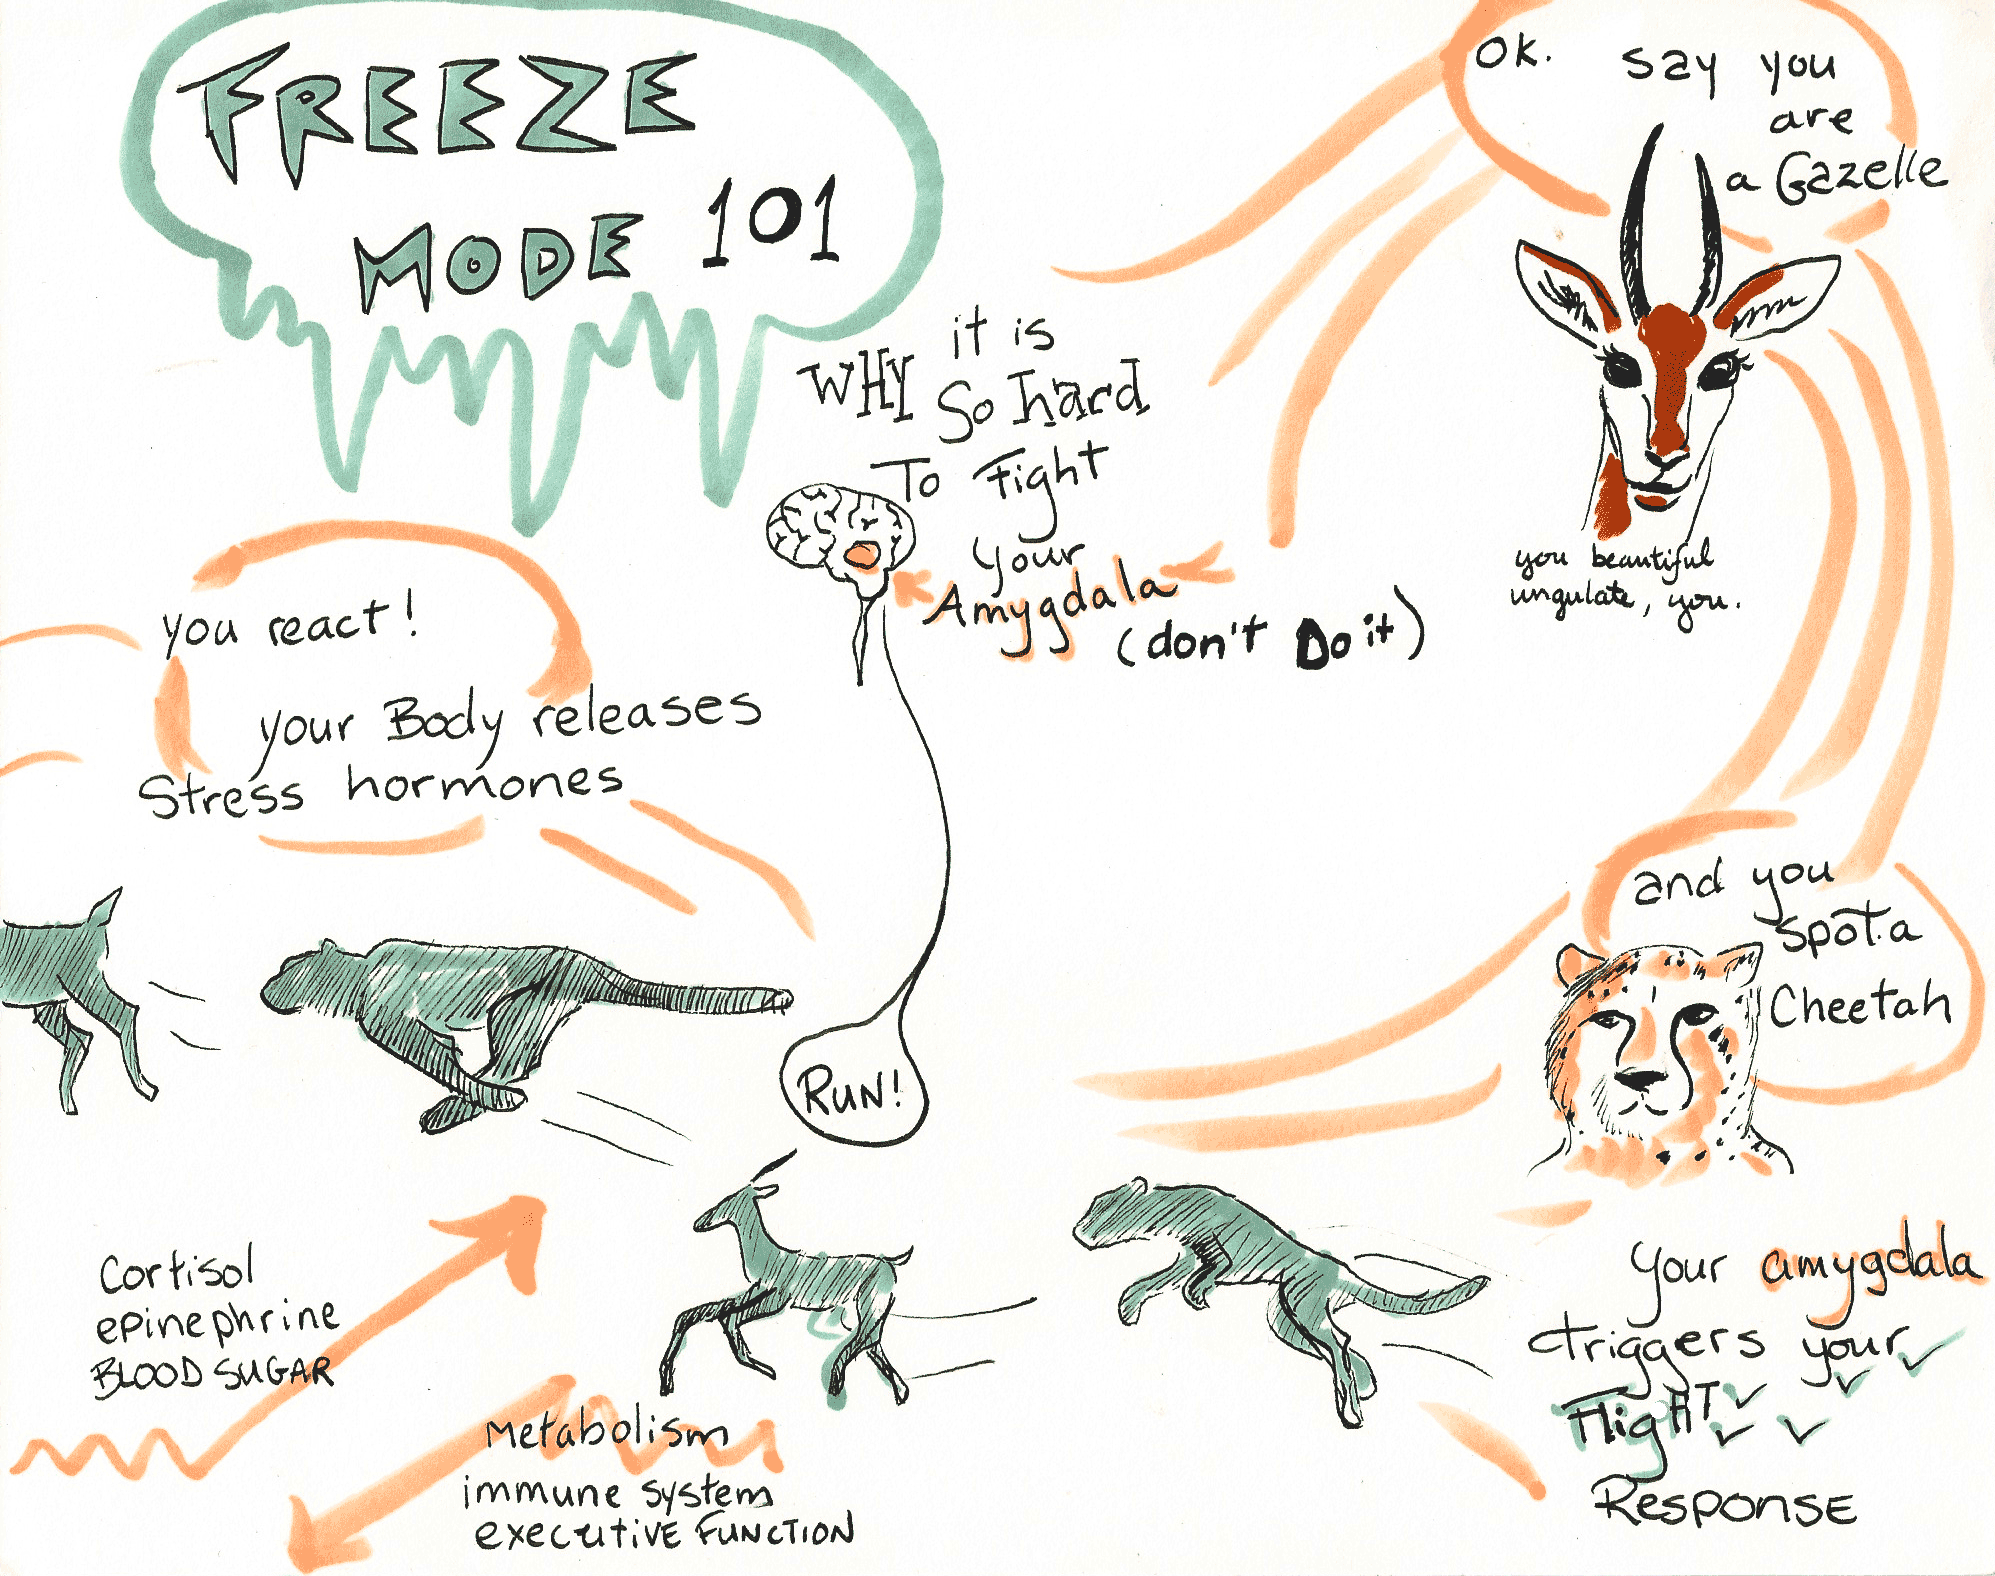 FREEZE
MODE 101
WHY it is
So hard
To Fight
your
Amygdala
(don't Do it)
OK. say you
are
a Gazelle
you beautiful
ungulate, you.
and you
spot a
Cheetah
your amygdala
triggers your
FligHT
RESPONSE
RUN!
you react!
your Body releases
Stress hormones
Cortisol
epinephrine
BLOOD SUGAR
Metabolism
immune system
executive FUNCTION